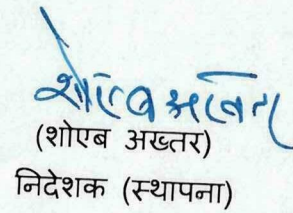 शोएब अख्तर
(शोएब अख्तर)
निदेशक (स्थापना)